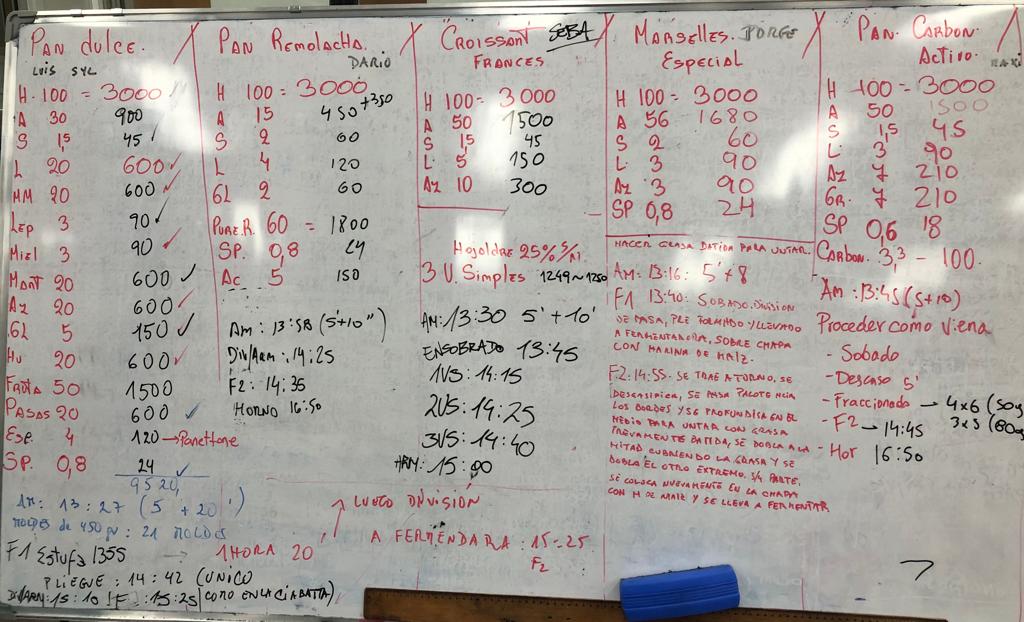 Pan dulce.
Luis SYL
H. 100 = 3000
A 30 900
S 1,5 45
L 20 600
MM 20 600
Lep 3 90
Miel 3 90
Mant 20 600
Az 20 600
GL 5 150
Hu 20 600
Fruta 50 1500
Pasas 20 600
Ese. 4 120 → Panettone
SP. 0,8 24
9520,
Am: 13:27 (5'+20')
moldes de 450 gr: 21 moldes
F1 Estufa 1355 → 1 HORA 20'
PLIEGUE: 14:42 (UNICO
COMO EN LA CIABATTA)
DIV/ARM: 15:10 [F]: 15:25
Pan Remolacha.
DARIO
H 100 = 3000
A 15 450 +350
S 2 60
L 4 120
GL 2 60
Pure.R. 60 = 1800
SP. 0,8 24
Ac 5 150
Am: 13:58 (5'+10")
Div/Arm: 14:25
F2: 14:35
HORNO 16:50
Croissant SEBA
FRANCES
H 100 = 3000
A 50 1500
S 1,5 45
L 5 150
Az 10 300
Hojaldre 25% S/M.
3 V. Simples 1249 ~ 1250
AM: 13:30 5'+10'
ENSOBRADO 13:45
1VS: 14:15
2VS: 14:25
3VS: 14:40
ARM: 15:00
LUEGO DIVISIÓN
A FERMENDARA: 15-25
F2
Marselles. JORGE
Especial
H 100 = 3000
A 56 1680
S 2 60
L 3 90
Az 3 90
SP 0,8 24
HACER GRASA BATIDA PARA UNTAR.
Am: 13:16: 5'+8
F1 13:40: SOBADO. DIVISION
DE MASA, PRE FORMADO Y LLEVADO
A FERMENTADORA, SOBRE CHAPA
CON HARINA DE MAÍZ.
F2: 14:55. SE TRAE A TORNO, SE
DESGASIFICA, SE PASA PALOTE HCIA
LOS BORDES Y SE PROFUNDISA EN EL
MEDIO PARA UNTAR CON GRASA
PREVAMENTE BATIDA, SE DOBLA A LA
MITAD CUBRIENDO LA GRASA Y SE
DOBLA EL OTRO EXTREMO. 3/4 PARTE.
SE COLOCA NUEVAMENTE EN LA CHAPA
CON H DE MAIZ Y SE LLEVA A FERMENTAR
Pan. Carbon.
Activo.
H 100 = 3000
A 50 1500
S 1,5 45
L 3 90
Az 7 210
Gr. 7 210
SP 0,6 18
Carbon. 3,3 - 100.
Am: 13:45 (5+10)
Proceder como Viena
- Sobado
- Descaso 5'
- Fraccionado → 4x6 (50g
3x5 (80g
- F2 → 14:45
- Hor 16:50